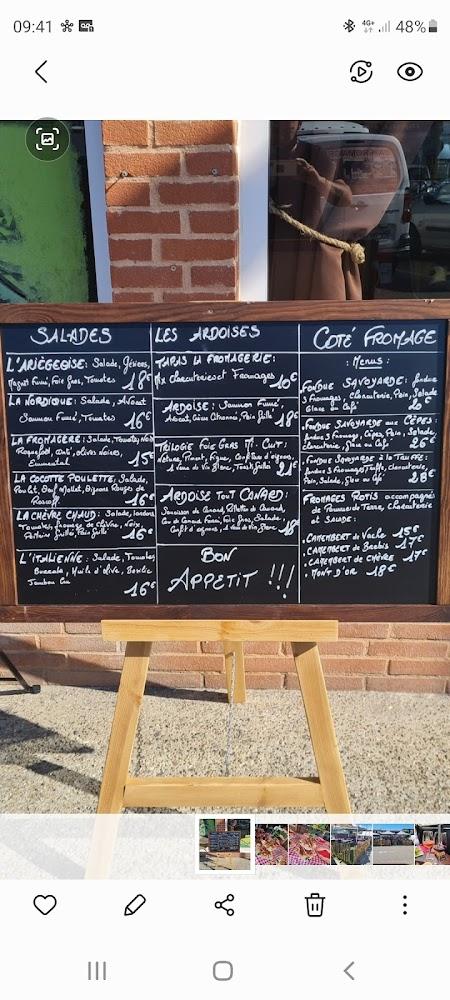 09:41
4G+ 48%
SALADES
L'ARIÈGEOISE: Salade, Gésiers,
Magret Fumé, Foie Gras, Tomates 18€
LA NORDIQUE: Salade, Avocat
Saumon Fumé, Tomates 16€
LA FROMAGÈRE: Salade, Tomates, Noix
Roquefort, olives noires,
Emmental 15€
LA COCOTTE POULETTE, Salade,
Poulet, Oeuf Mollet, Oignons Rouges de
Roscoff 16€
LA CHÈVRE CHAUD: Salade, lardons
Tomates, fromage de chèvre, Noix
Poitrine grillé 16€
L'ITALIENNE: Salade, Tomates,
Burrata, Huile d'olive, Basilic
Jambon Cru 16€
LES ARDOISES
TAPAS LA FROMAGERIE:
Mix charcuteries et Fromages 10€
ARDOISE: Saumon Fumé,
Avocat, Pain Grillé 18€
TRILOGIE FOIE GRAS MI-CUIT:
Nature, Piment, Figues, Confiture d'oignons,
1 verre de Vin Blanc, Toast Grillés 21€
ARDOISE TOUT CANARD:
Saucisson de Canard, Rillette de Canard,
Cou de Canard Farci, Foie Gras, Salade,
Confit d'oignons, 1 verre de Vin Blanc 18€
BON
APPETIT !!!
COTÉ FROMAGE
: MENUS:
FONDUE SAVOYARDE: fondue
3 Fromages, Charcuterie, Pain, Salade
Glace ou Café 20€
FONDUE SAVOYARDE aux CÈPES:
fondue 3 fromages, Cèpes, Pain, Salade
charcuterie, Glace ou Café 26€
FONDUE SAVOYARDE à la TRUFFE:
fondue 3 fromages Truffe, charcuterie,
Pain, Salade, Glace ou Café 28€
FROMAGES ROTIS accompagné
de Pomme de Terre, Charcuterie
et SALADE:
. CAMEMBERT de Vache 15€
. CAMEMBERT de Brebis 17€
. CAMEMBERT de CHÈVRE 17€
. MONT D'OR 18€